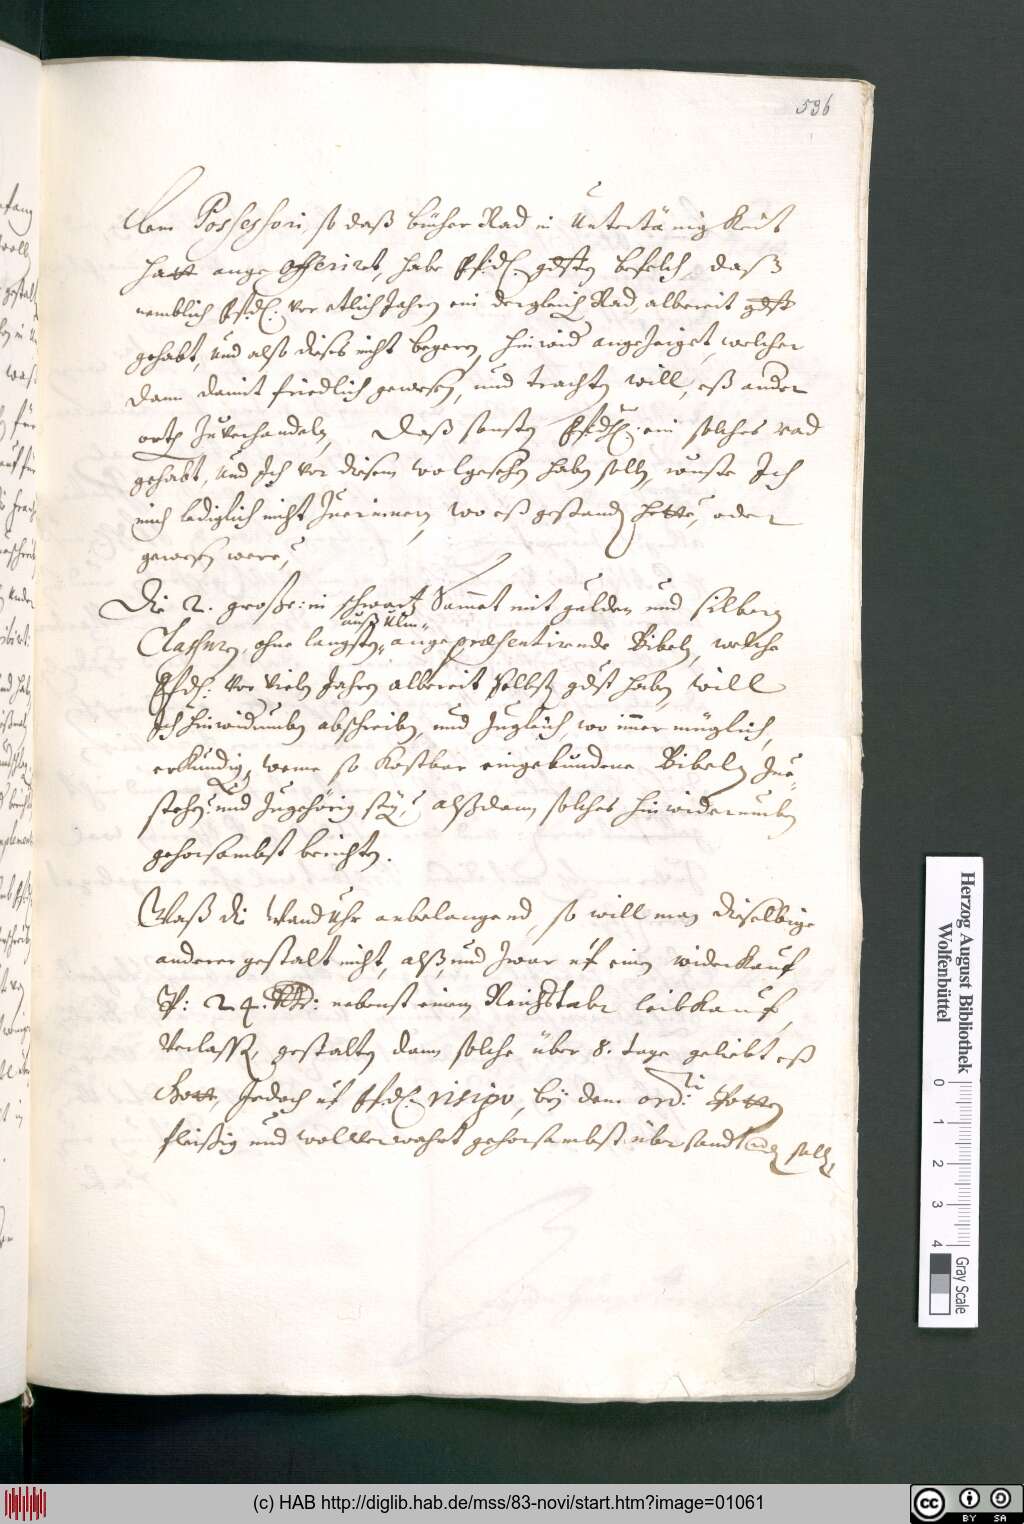 536
dem Possessori, so daß bücher Rad in Untertänigkeit
hatt ange offerirt, habe Efdl. gdsten befelch, daß
nemblich Efdl. vor etlich Jahren ein dergleich Rad, albereit gdst
gehabt, und also dieses nicht begeren, hinwid angezeiget, welcher
dann damit friedlich gewesen, und trachten will, eß ander
orth zuverhandeln, Daß sonsten Efdl. ein solches rad
gehabt, und Ich vor diesem wolgesehen haben solle, wüste Ich
mich lediglich nicht zuerinnern, wo eß gestanden hette, oder
gewesen were,
Die 2. große: in schwartz Sammet mit gulden und silbern
auß Ulm
Clausuren, ohne langsten, ange præsentirende Bibeln, welche
Efdl. vor vielen Jahren albereit selbsten gdst haben, will
Ich hinwidumben abschreiben, und zugleich, wo immer müglich,
erkundigen, weme so kostbar eingebundene Bibeln zue-
stehen: und zugehörig sey, alßdann solches hinwiderumben
gehorsambst berichten.
Waß die Wand Uhr anbelangend, so will man dieselbige
anderer gestalt nicht, alß, und zwar uf einen widerkauf
P: 24. Rthr: nebenst einem Reichstalr leibkauf,
verlassen, gestalten dann solche über 8. tage geliebt eß
Gott, Jedoch uf Efdl. risigo, bey dem ordi: Botten
fleißig und wollverwahrt gehorsambst übersandt werden solle,
Herzog August Bibliothek
Wolfenbüttel
0 1 2 3 4
Gray Scale
(c) HAB http://diglib.hab.de/mss/83-novi/start.htm?image=01061
cc BY SA